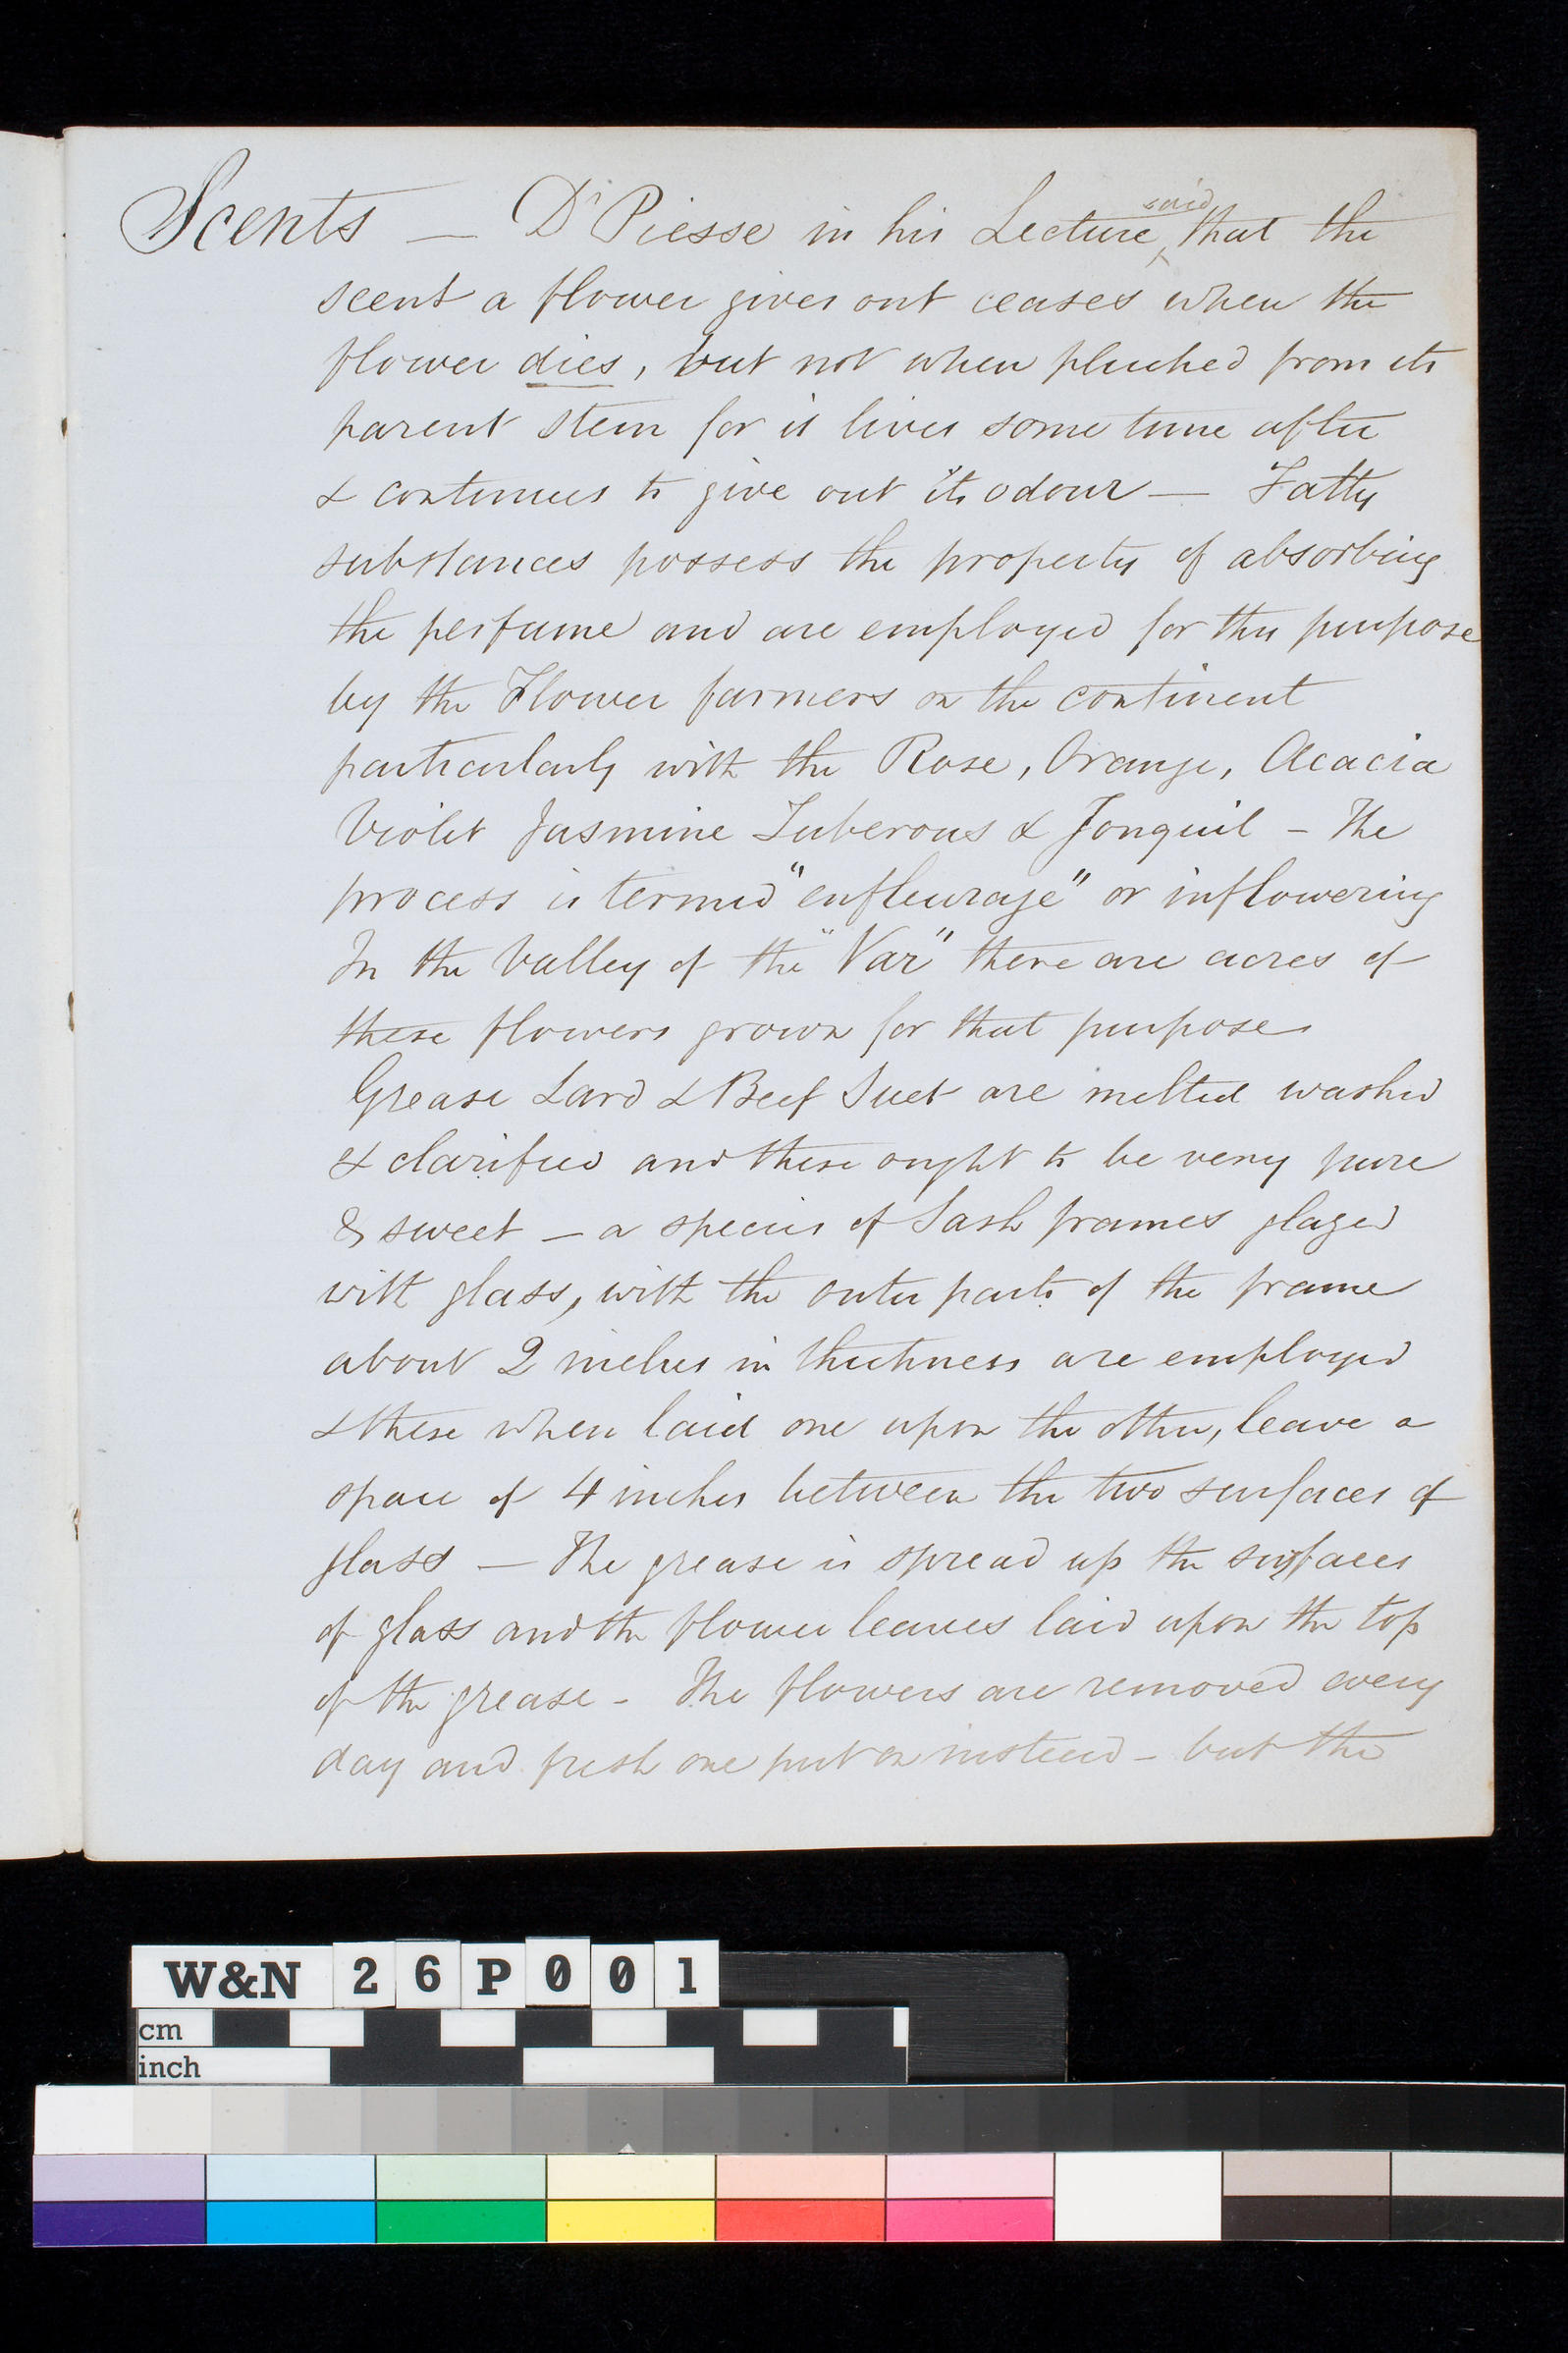 Scents — Dr Piesse in his Lecture said that the
scent a flower gives out ceases when the
flower dies, but not when plucked from its
parent stem for it lives some time after
& continues to give out its odour — Fatty
substances possess the property of absorbing
the perfume and are employed for this purpose
by the Flower farmers on the continent
particularly with the Rose, Orange, Acacia
Violet Jasmine Tuberous & Jonquil – The
process is termed "enfleurage" or inflowering
In the Valley of the "Var" there are acres of
these flowers grown for that purpose
Grease Lard & Beef Suet are melted washed
& clarified and these ought to be very pure
& sweet – a species of Sash frames glazed
with glass, with the outer parts of the frame
about 2 inches in thickness are employed
& these when laid one upon the other, leave a
space of 4 inches between the two surfaces of
glass — The grease is spread up the surfaces
of glass and the flower leaves laid upon the top
of the grease – The flowers are removed every
day and fresh one put on instead – but the
W&N 26P001
cm
inch